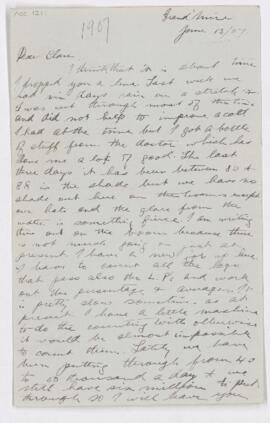 1907
Grand'Mère
June 13/07
Dear Clare.
I think that it is about time
I dropped you a line. Last week we
had six days rain on a stretch &
I was out through most of the time
and did not help to improve a cold
I had at the time but I got a bottle
of stuff from the doctor which has
done me a lot of good. The last
three days it has been between 80 &
88 in the shade but we have no
shade out here on the booms except
our hats and the glare from the
water is something fierce. I am writing
this out on the boom because there
is not much going on just at
present. I have a new job up here.
I have to count all the logs
that pass also the L.P.s and work
out the percentage & averages. It
is pretty slow sometimes. as at
present I have a little machine
to do the counting with otherwise
it would be almost impossible
to count them. Lately we have
been putting through from 40
to 50 thousand a day & we
still have six million to put
through so I will have you